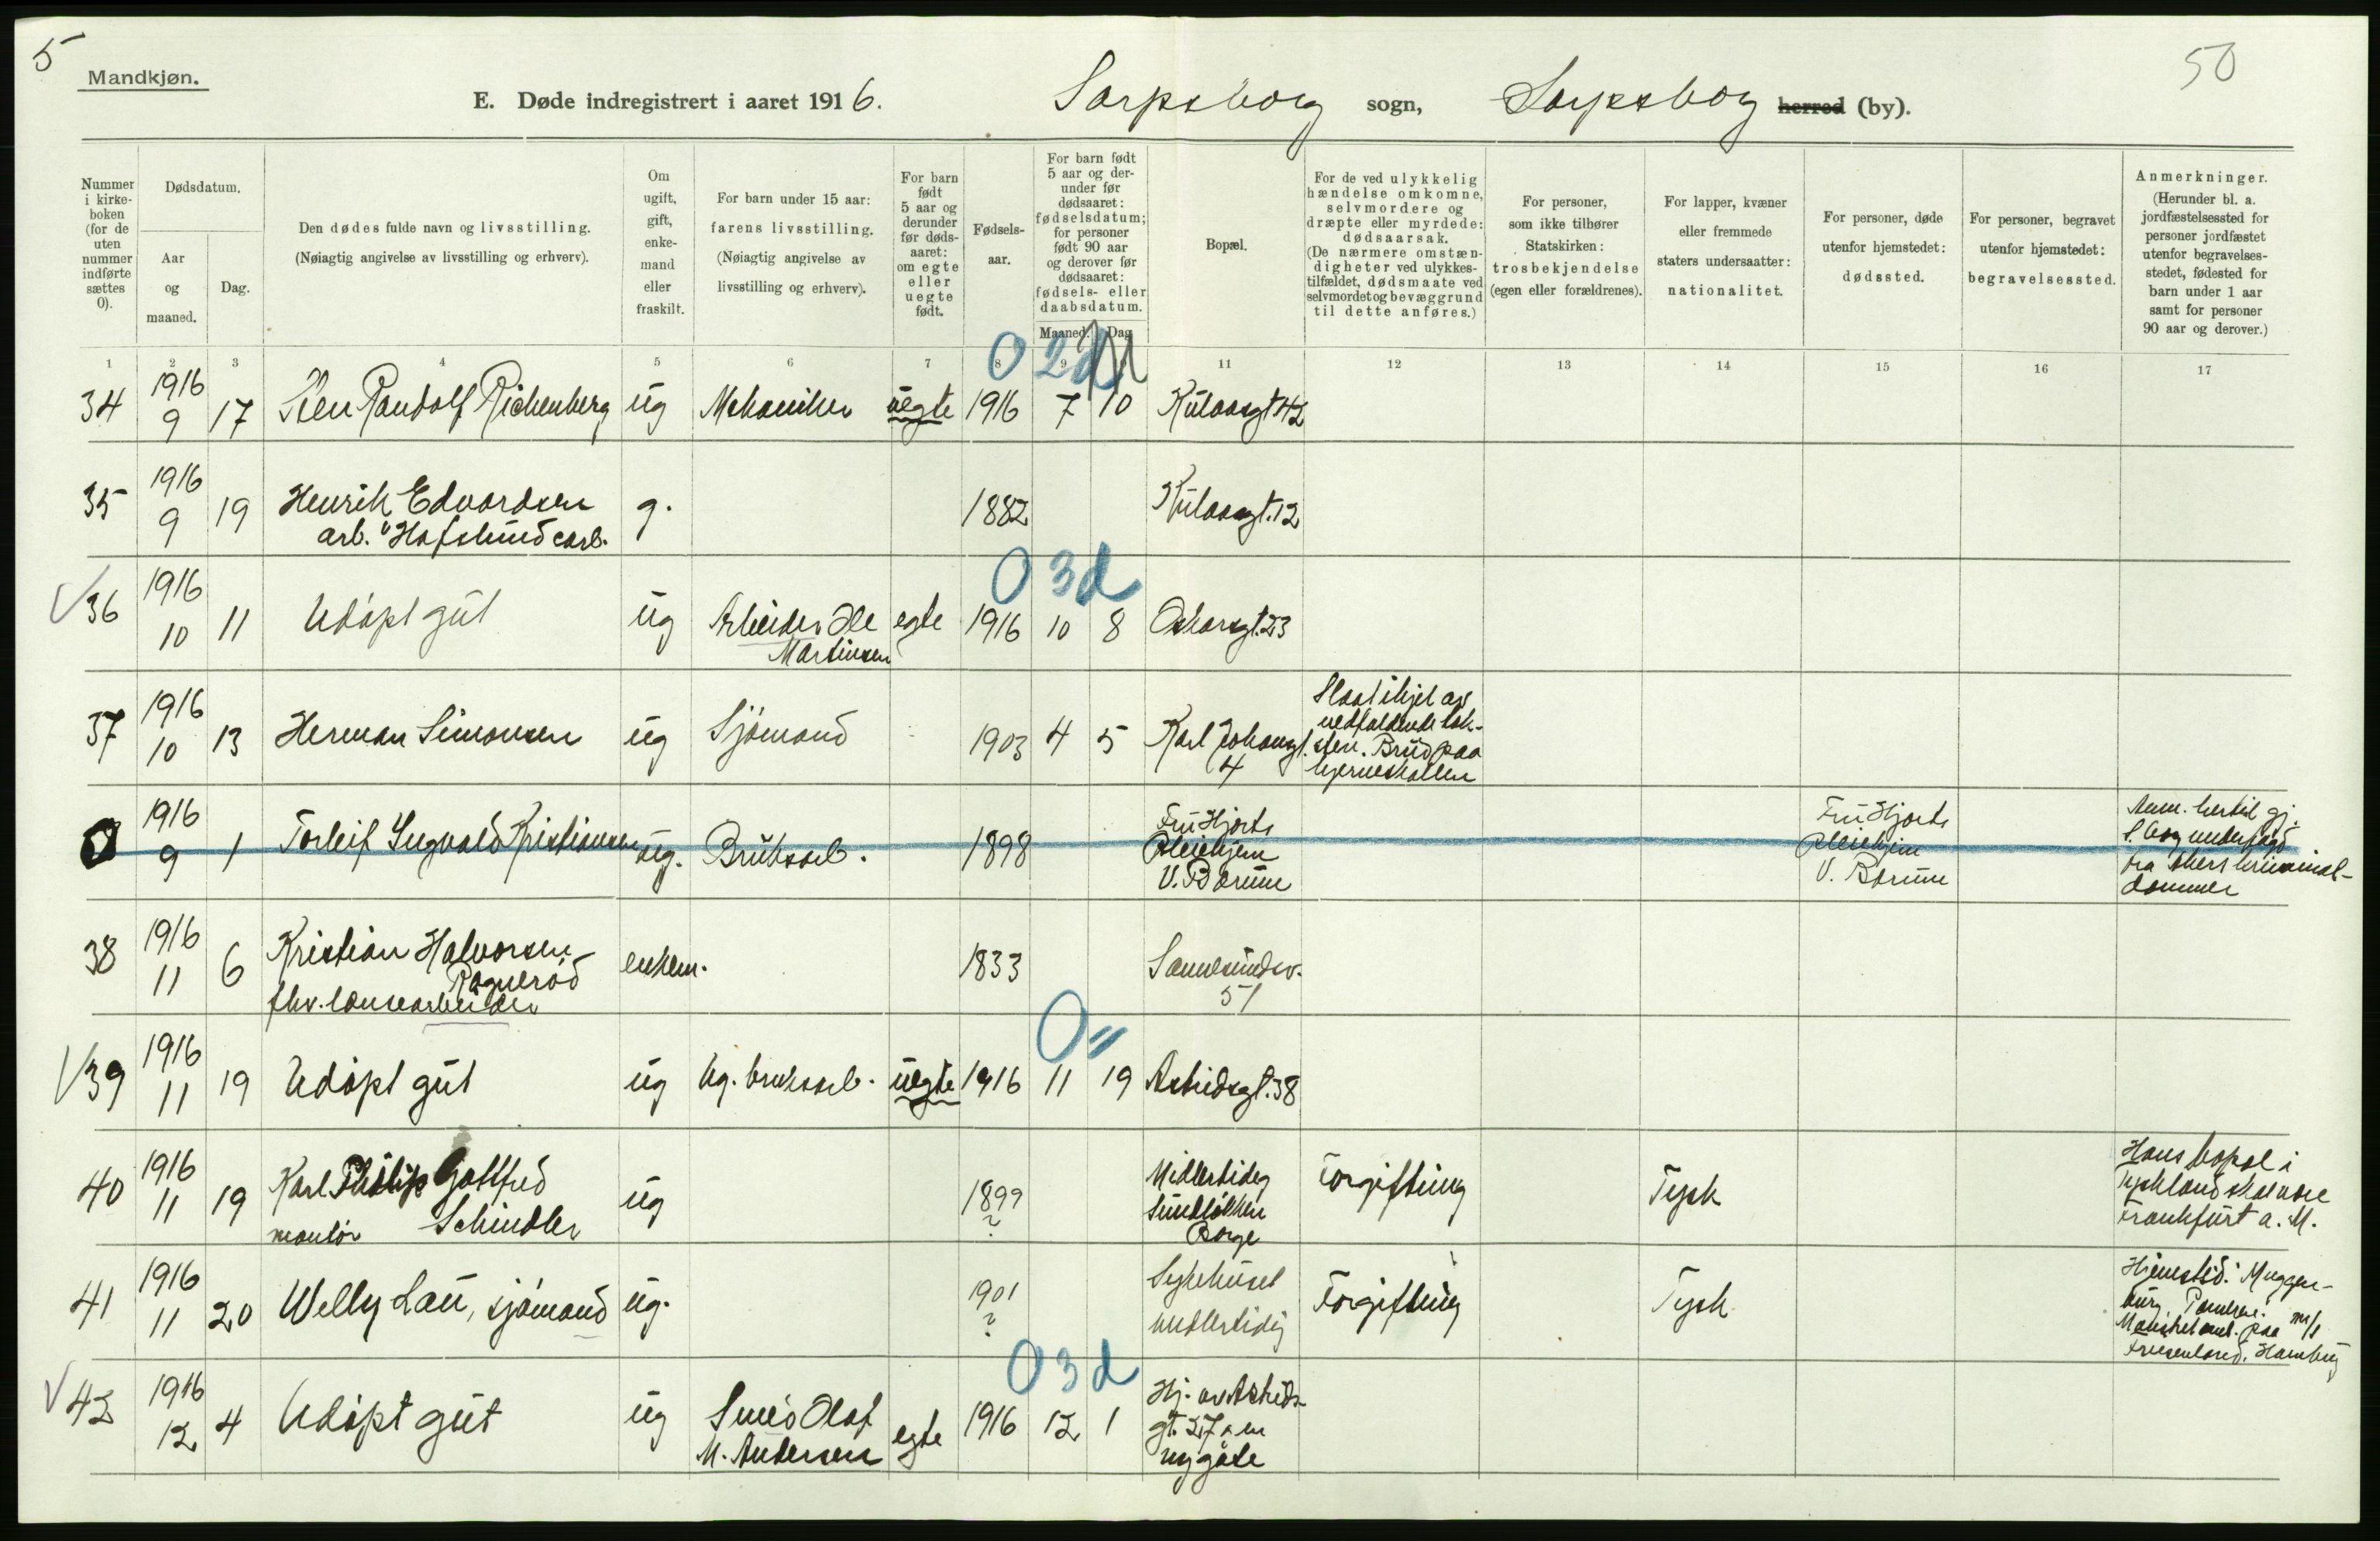 5
50
Mandkjøn.
E. Døde indregistrert i aaret 1916. Sarpsborg sogn, Sarpsborg herred (by).
Nummer i kirkeboken (for de uten nummer indførte sættes 0).
Dødsdatum.
Aar og maaned.
Dag.
Den dødes fulde navn og livsstilling.
(Nøiagtig angivelse av livsstilling og erhverv).
Om ugift, gift, enkemand eller fraskilt.
For barn under 15 aar: farens livsstilling.
(Nøiagtig angivelse av livsstilling og erhverv).
For barn født 5 aar og derunder før dødsaaret: om egte eller uegte født.
Fødselsaar.
For barn født 5 aar og derunder før dødsaaret: fødselsdatum; for personer født 90 aar og derover før dødsaaret: fødsels- eller daabsdatum.
Maaned. Dag.
Bopæl.
For de ved ulykkelig hændelse omkomne, selvmordere og dræpte eller myrdede: dødsaarsak.
(De nærmere omstændigheter ved ulykkestilfældet, dødsmaate ved selvmordet og bevæggrund til dette anføres.)
For personer, som ikke tilhører Statskirken: trosbekjendelse (egen eller forældrenes).
For lapper, kvæner eller fremmede staters undersaatter: nationalitet.
For personer, døde utenfor hjemstedet: dødssted.
For personer, begravet utenfor hjemstedet: begravelsessted.
Anmerkninger.
(Herunder bl. a. jordfæstelsessted for personer jordfæstet utenfor begravelsesstedet, fødested for barn under 1 aar samt for personer 90 aar og derover.)
1 2 3 4 5 6 7 8 9 11 12 13 14 15 16 17
0 2d
34 1916 9 17 Randolf Richenberg ug Mekaniker uegte 1916 7 10 Kulaasgt 42
35 1916 9 19 Henrik Edvardsen g. 1882 Kulaasgt. 12
arb. "Hafslund carb.
0 3d
36 1916 10 11 Udöpt gut ug Arbeider Ole Martinsen egte 1916 10 8 Oskarsgt. 23
37 1916 10 13 Herman Simonsen ug Sjömand 1903 4 5 Karl Johansgt. 4 Slaat ihjel av nedfaldende tak-sten. Brud paa hjerneskallen
0 1916 9 1 Torleif Ingvald Kristiansen ug. Bruksarb. 1898 Fru Hjorts Pleiehjem V. Bærum Fru Hjorts Pleiehjem V. Bærum
38 1916 11 6 Kristian Halvorsen Ragneröd enkem. 1833 Sannesundsv. 51
fhv. lænsearbeider
0 "
39 1916 11 19 Udöpt gut ug ug. bruksarb. uegte 1916 11 19 Astridsgt. 38
40 1916 11 19 Karl Philip Gottfried Schindler ug 1899 ? Midlertidig Sundløkken Borge Forgiftning Tysk Hans bopæl i Tyskland skal være Frankfurt a. M.
montör
41 1916 11 20 Welly Lau, sjömand ug. 1901 ? Sykehuset midlertidig Forgiftning Tysk Hjemsted: paa m/s Hamburg
0 3d
42 1916 12 4 Udöpt gut ug Smed Olaf M. Andersen egte 1916 12 1 Hj. av Astrids-gt. 27 en ny gate